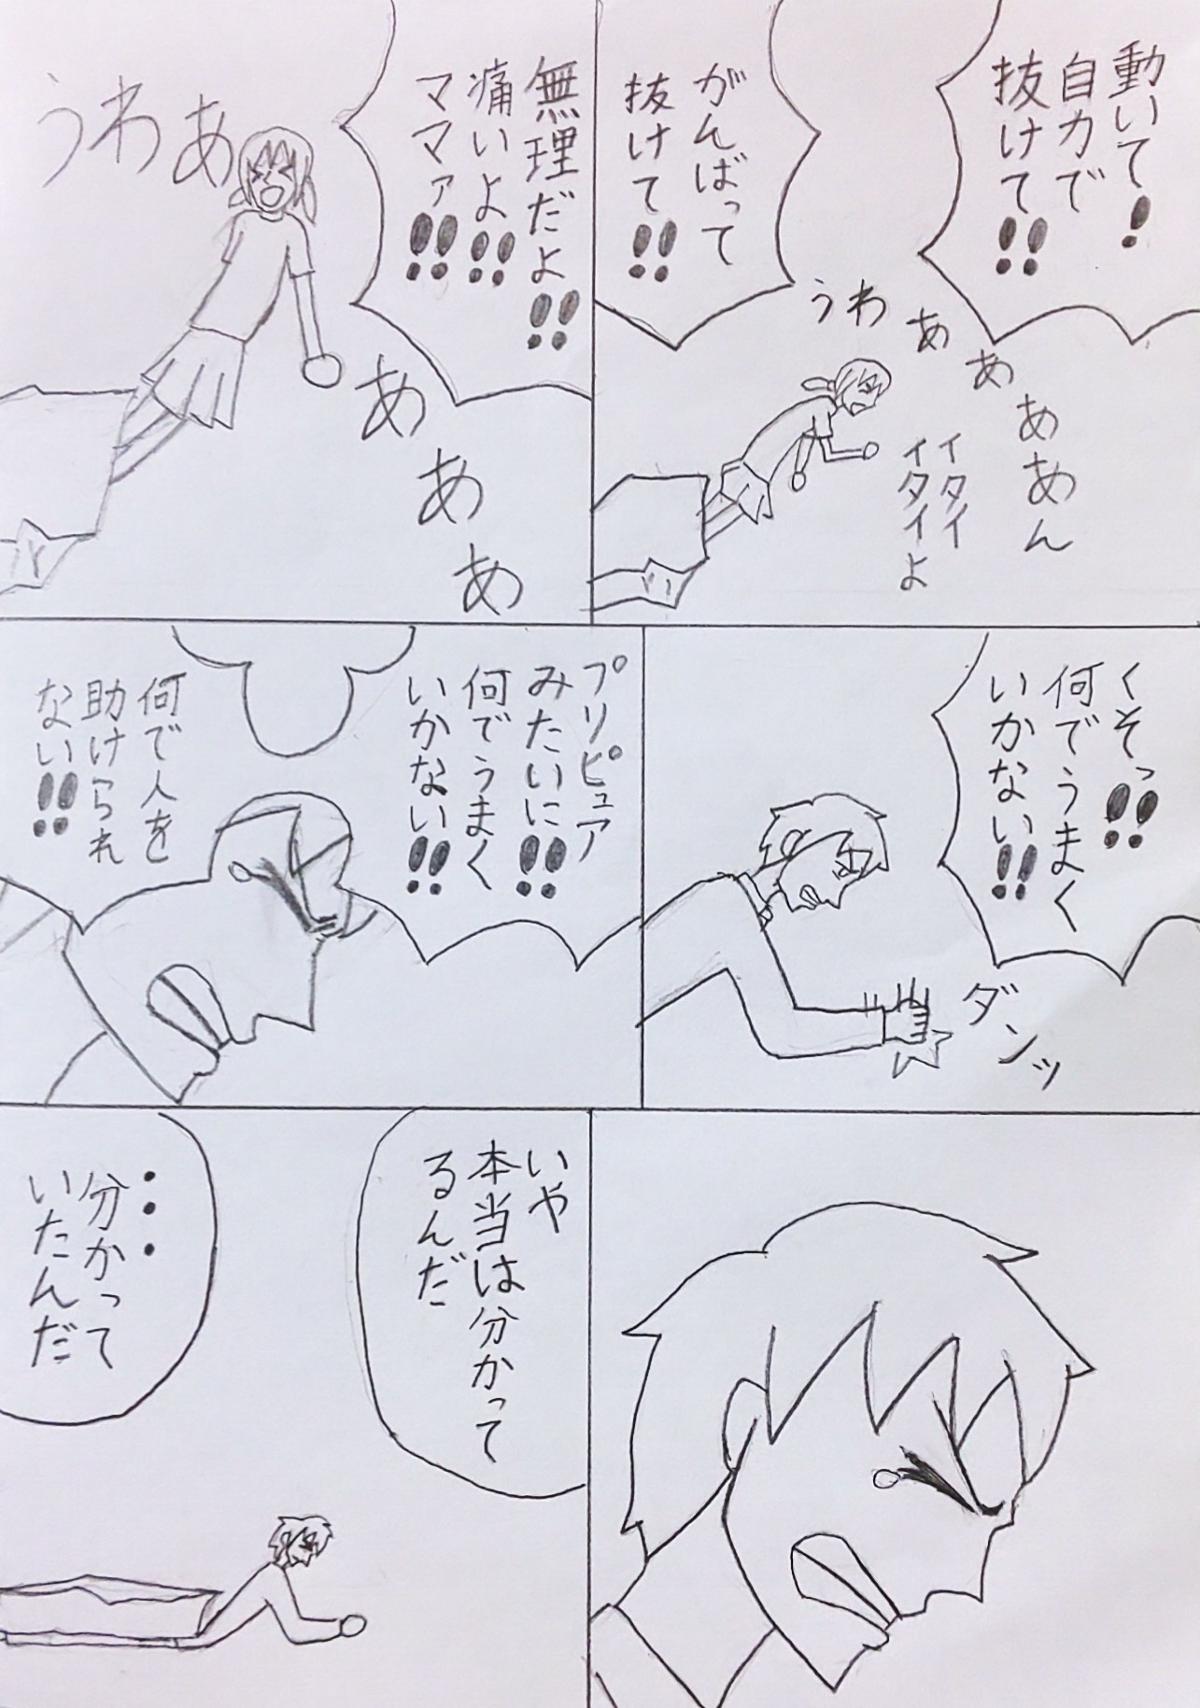 動いて！
自力で
抜けて!!
がんばって
抜けて!!
うわああああん
イタイ
イタイよ
無理だよ!!
痛いよ!!
ママァ!!
うわあ
あああ
くそっ!!
何でうまく
いかない!!
ダンッ
プリピュア
みたいに!!
何でうまく
いかない!!
何で人を
助けられ
ない!!
いや
本当は分かって
るんだ
・・・
分かって
いたんだ